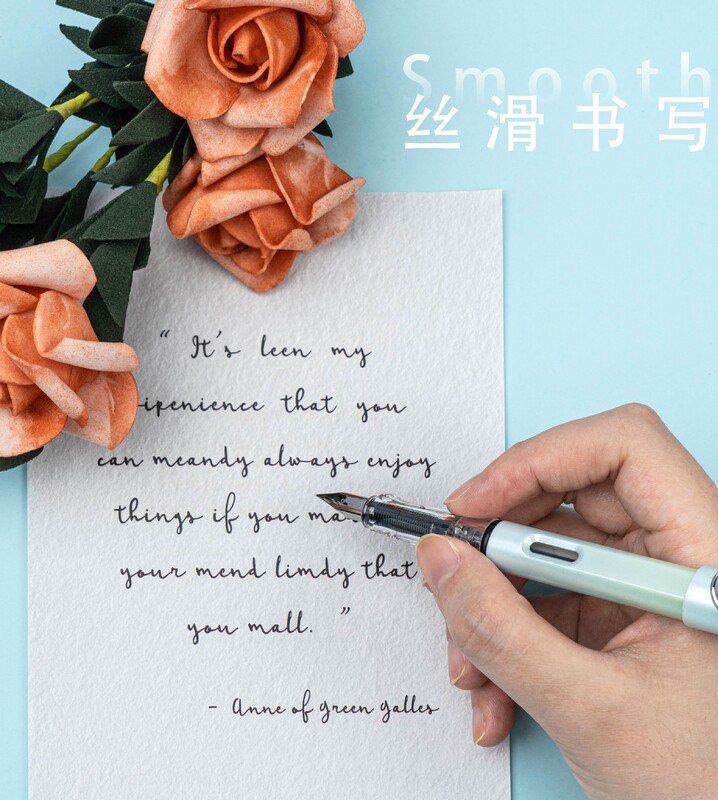 Smooth
丝滑书写
“ It's leen my
ipenience that you
can meandy always enjoy
things if you ma
your mend limdy that
you mall. ”
- Anne of Green Galles